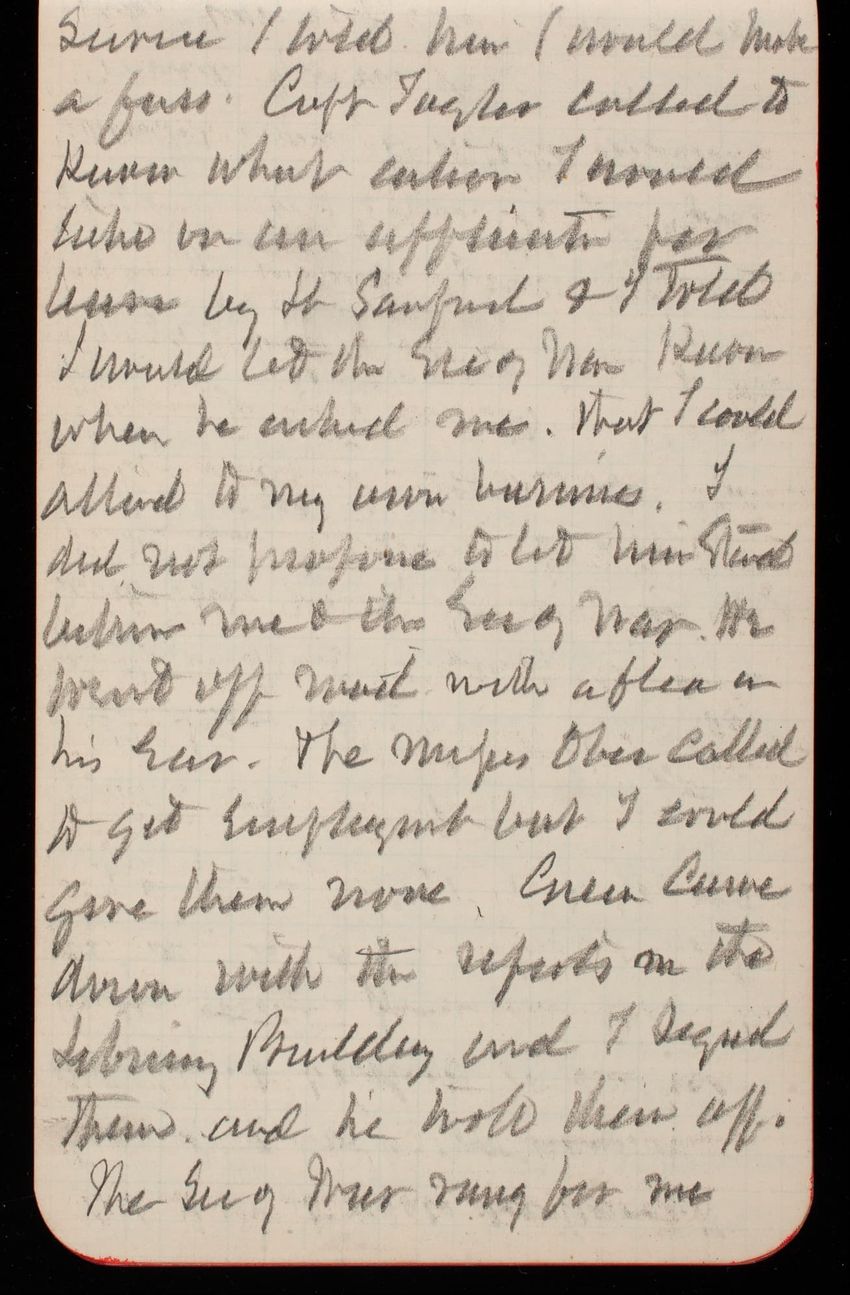 Service I told him I would make
a fuss. Capt Taylor called to
Know what action I would
take on an application for
leave by Lt Sanford & I told
I would let the Sec of War Know
when he asked me. that I could
attend to my own business. I
did not propose to let him Stand
between me & the Sec of War. He
went off mad with a flea in
his Ear. The Misses Ober called
to get Employment but I could
give them none. Green Came
down with the reports on the
Library Building and I signed
them. and he took them off.
The Sec of War rang for me